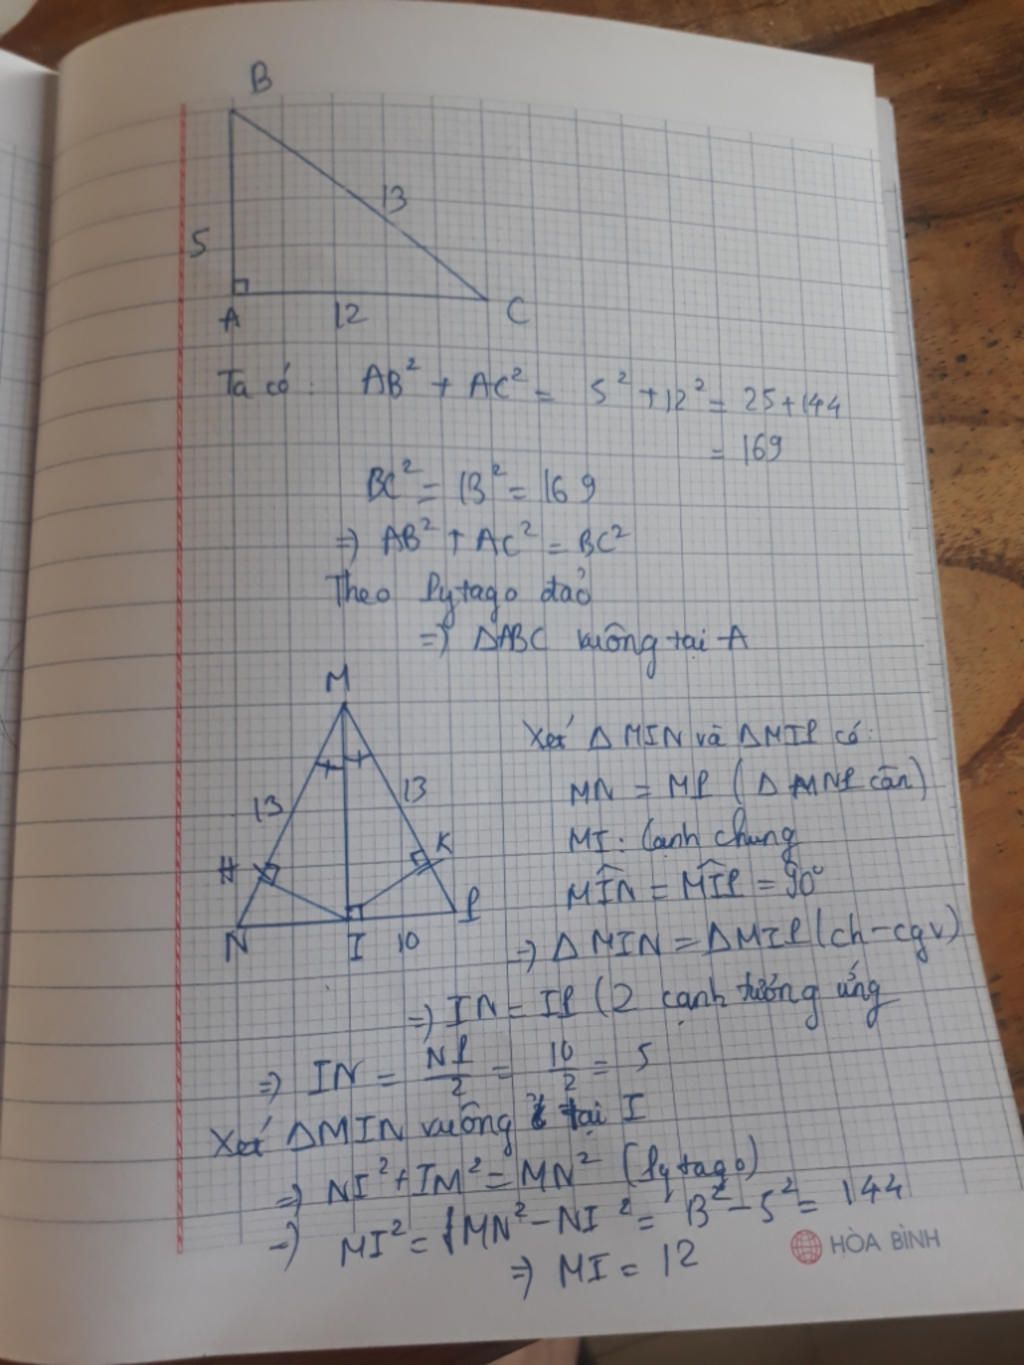 B
13
5
A
12
C
Ta có: AB² + AC² = 5² + 12² = 25 + 144
= 169
BC² = 13² = 169
=> AB² + AC² = BC²
Theo Pytago đảo
=> ΔABC vuông tại A
M
13
13
H
K
N
I
10
P
Xét ΔMIN và ΔMIP có:
MN = MP (ΔMNP cân)
MI: Cạnh chung
MÎN = MÎP = 90°
=> ΔMIN = ΔMIP (ch-cgv)
=> IN = IP (2 cạnh tướng ứng
=> IN = NP/2 = 10/2 = 5
Xét ΔMIN vuông tại I
=> NI² + IM² = MN² (Pytago)
=> MI² = MN² - NI² = 13² - 5² = 144
=> MI = 12
HÒA BÌNH